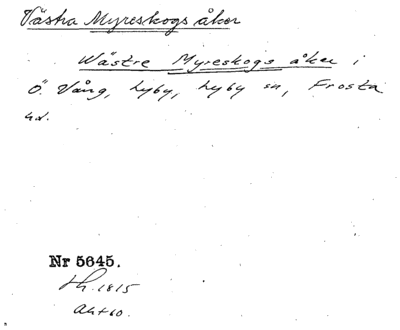 Västra Myreskogs åker
Wästre Myreskogs åker i
Ö. Vång, Lyby, Lyby sn, Frosta
hd.
Nr 5645.
1815